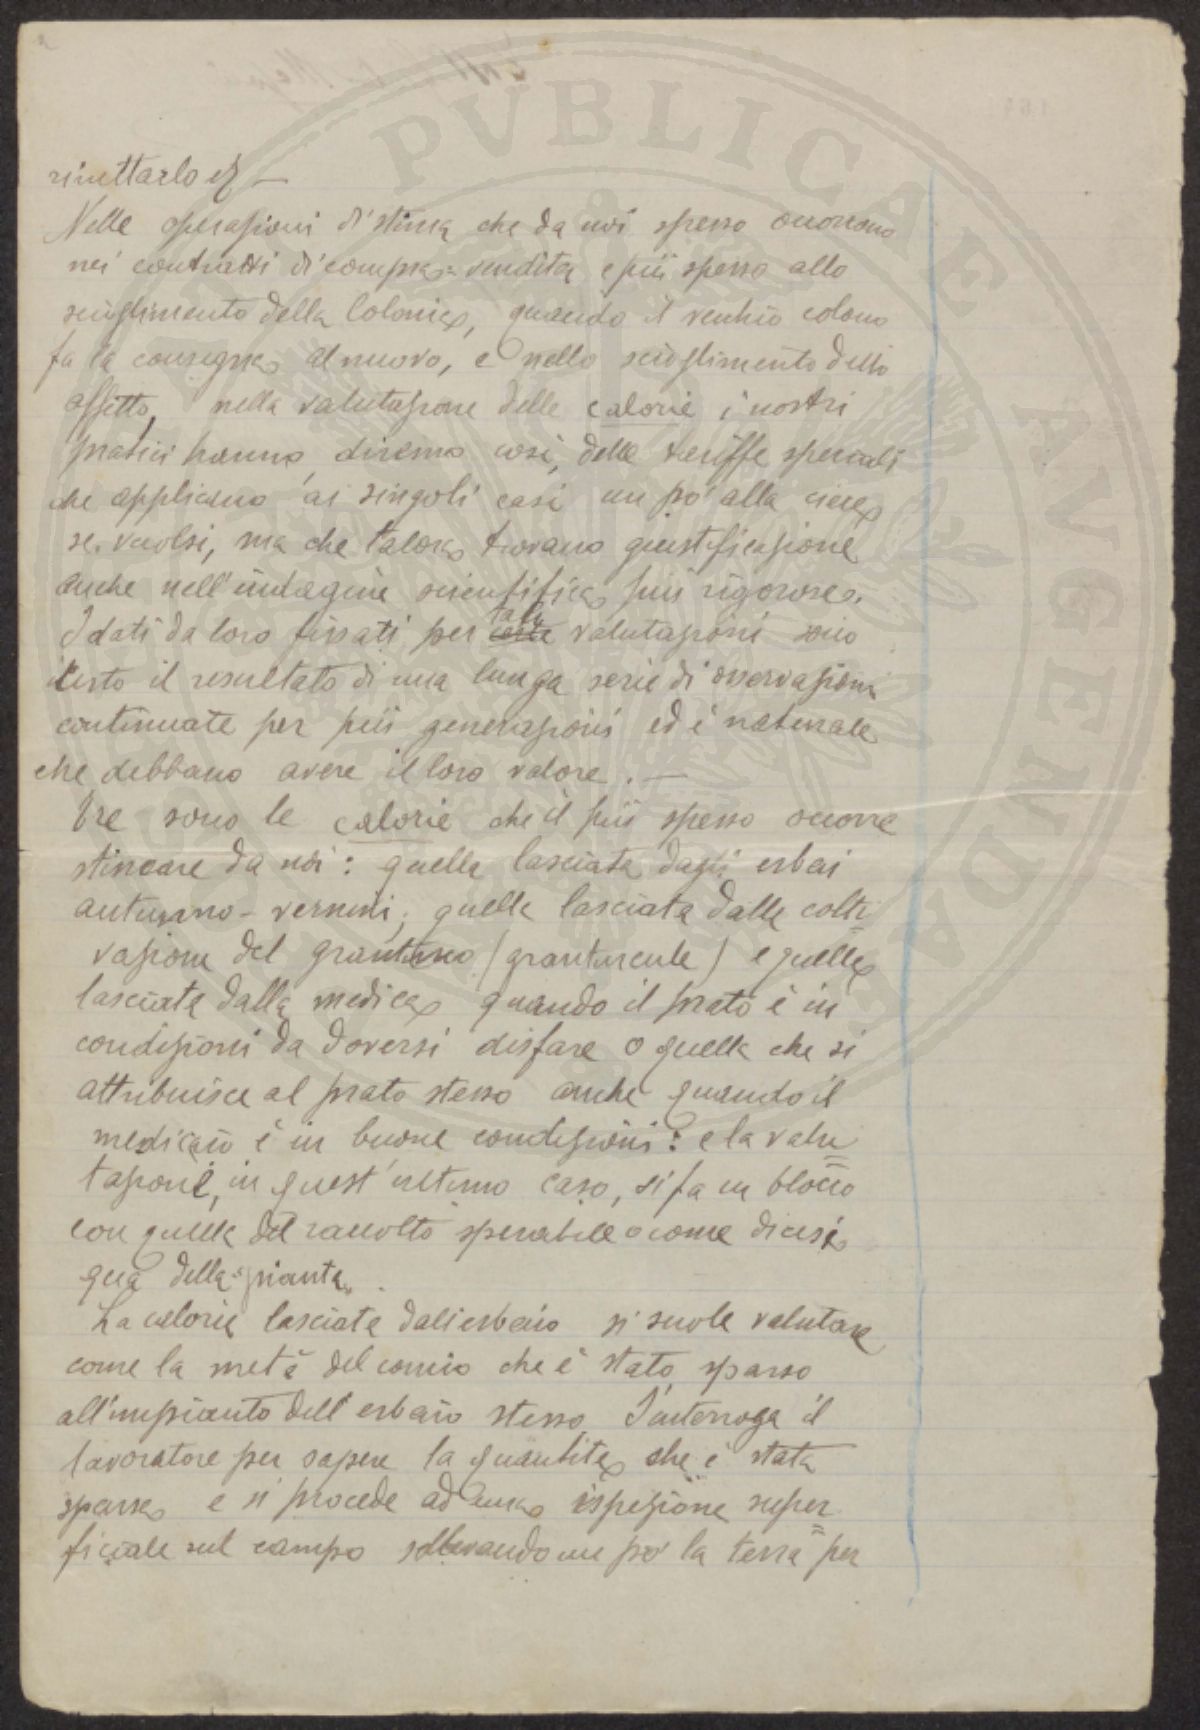 PVBLICAE
AVGENDAE
Nelle operazioni di stima che da noi spesso occorrono
nei contratti di compra-vendita e più spesso allo
scioglimento della Colonia, quando il vecchio colono
fa la consegna al nuovo, e nello scioglimento dello
affitto, nella valutazione delle calorie i nostri
pratici hanno, diremo così, delle tariffe speciali
che applicano ai singoli casi un po' alla cieca
se vuolsi, ma che talora trovano giustificazione
anche nell'indagine scientifica più rigorosa.
I dati da loro fissati per tali valutazioni sono
certo il resultato di una lunga serie di osservazioni
continuate per più generazioni ed è naturale
che debbano avere il loro valore. —
Tre sono le calorie che il più spesso occorre
stimare da noi: quella lasciata dagli erbai
autunno-vernini, quella lasciata dalla colti
vazione del granturco (granturcale) e quella
lasciata dalla medica quando il prato è in
condizioni da doversi disfare o quella che si
attribuisce al prato stesso anche quando il
medicaio è in buone condizioni: e la valu
tazione, in quest'ultimo caso, si fa in blocco
con quella del raccolto sperabile o come dicesi
qua della "pianta".
La caloria lasciata dall'erbaio si suole valutare
come la metà del concio che è stato sparso
all'impianto dell'erbaio stesso. S'interroga il
lavoratore per sapere la quantità che è stata
sparsa e si procede ad una ispezione super
ficiale sul campo sollevando un po' la terra per